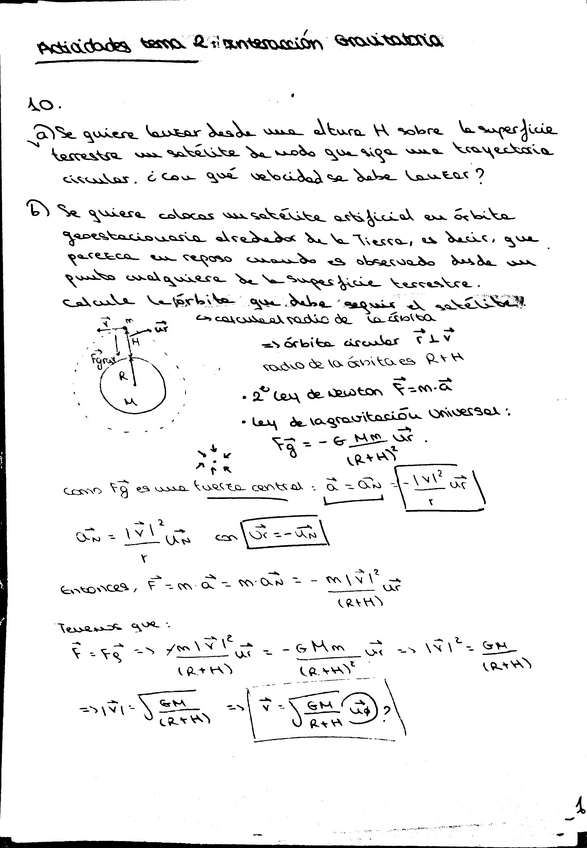 Actividades tema 2: Interacción Gravitatoria
10.
a) Se quiere lanzar desde una altura H sobre la superficie
terrestre un satélite de modo que siga una trayectoria
circular. ¿con qué velocidad se debe lanzar?
b) Se quiere colocar un satélite artificial en órbita
geoestacionaria alrededor de la Tierra, es decir, que
parezca en reposo cuando es observado desde un
punto cualquiera de la superficie terrestre.
Calcule la órbita que debe seguir el satélite.
↳ calcule el radio de la órbita
v⃗ m u⃗r
H
F⃗grav
R
M
=> órbita circular r⃗ ⊥ v⃗
radio de la órbita es R+H
• 2ª Ley de Newton F⃗ = m·a⃗
• Ley de la gravitación Universal:
F⃗g = - G Mm/(R+H)² u⃗r.
como F⃗g es una fuerza central : a⃗ = a⃗N = -|v⃗|²/r u⃗r
a⃗N = |v⃗|²/r u⃗N con u⃗r = -u⃗N
Entonces, F⃗ = m·a⃗ = m·a⃗N = - m|v⃗|²/(R+H) u⃗r
Tenemos que :
F⃗ = F⃗g => -m|v⃗|²/(R+H) u⃗r = -GMm/(R+H)² u⃗r => |v⃗|² = GM/(R+H)
=> |v⃗| = √(GM/(R+H)) => v⃗ = √(GM/(R+H)) u⃗φ ?
1